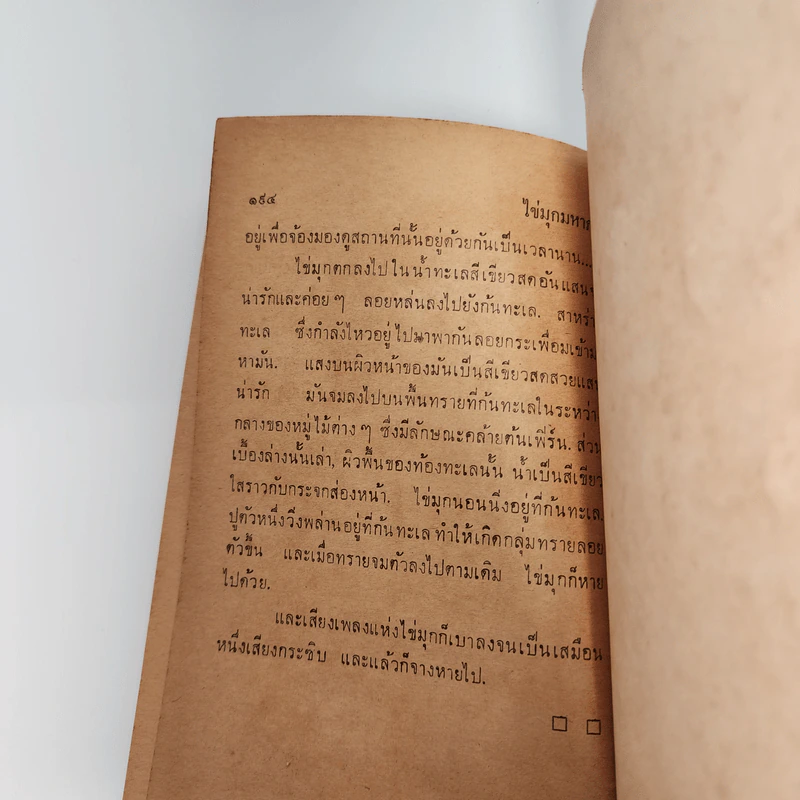 ๑๙๔
ไข่มุกมหา
อยู่เพื่อจ้องมองดูสถานที่นั้นอยู่ด้วยกันเป็นเวลานาน...
ไข่มุกตกลงไปในน้ำทะเลสีเขียวสดอันแสน
น่ารักและค่อยๆ ลอยหล่นลงไปยังก้นทะเล. สาหร่า
ทะเล ซึ่งกำลังไหวอยู่ไปมาพากันลอยกระเพื่อมเข้าม
หามัน. แสงบนผิวหน้าของมันเป็นสีเขียวสดสวยแส
น่ารัก มันจมลงไปบนพื้นทรายที่ก้นทะเลในระหว่า
กลางของหมู่ไม้ต่างๆ ซึ่งมีลักษณะคล้ายต้นเฟิร์น. ส่วน
เบื้องล่างนั้นเล่า, ผิวพื้นของท้องทะเลนั้น น้ำเป็นสีเขียว
ใสราวกับกระจกส่องหน้า. ไข่มุกนอนนิ่งอยู่ที่ก้นทะเล.
ปูตัวหนึ่งวิ่งพล่านอยู่ที่ก้นทะเลทำให้เกิดกลุ่มทรายลอย
ตัวขึ้น และเมื่อทรายจมตัวลงไปตามเดิม ไข่มุกก็หาย
ไปด้วย.
และเสียงเพลงแห่งไข่มุกก็เบาลงจนเป็นเสมือน
หนึ่งเสียงกระซิบ และแล้วก็จางหายไป.